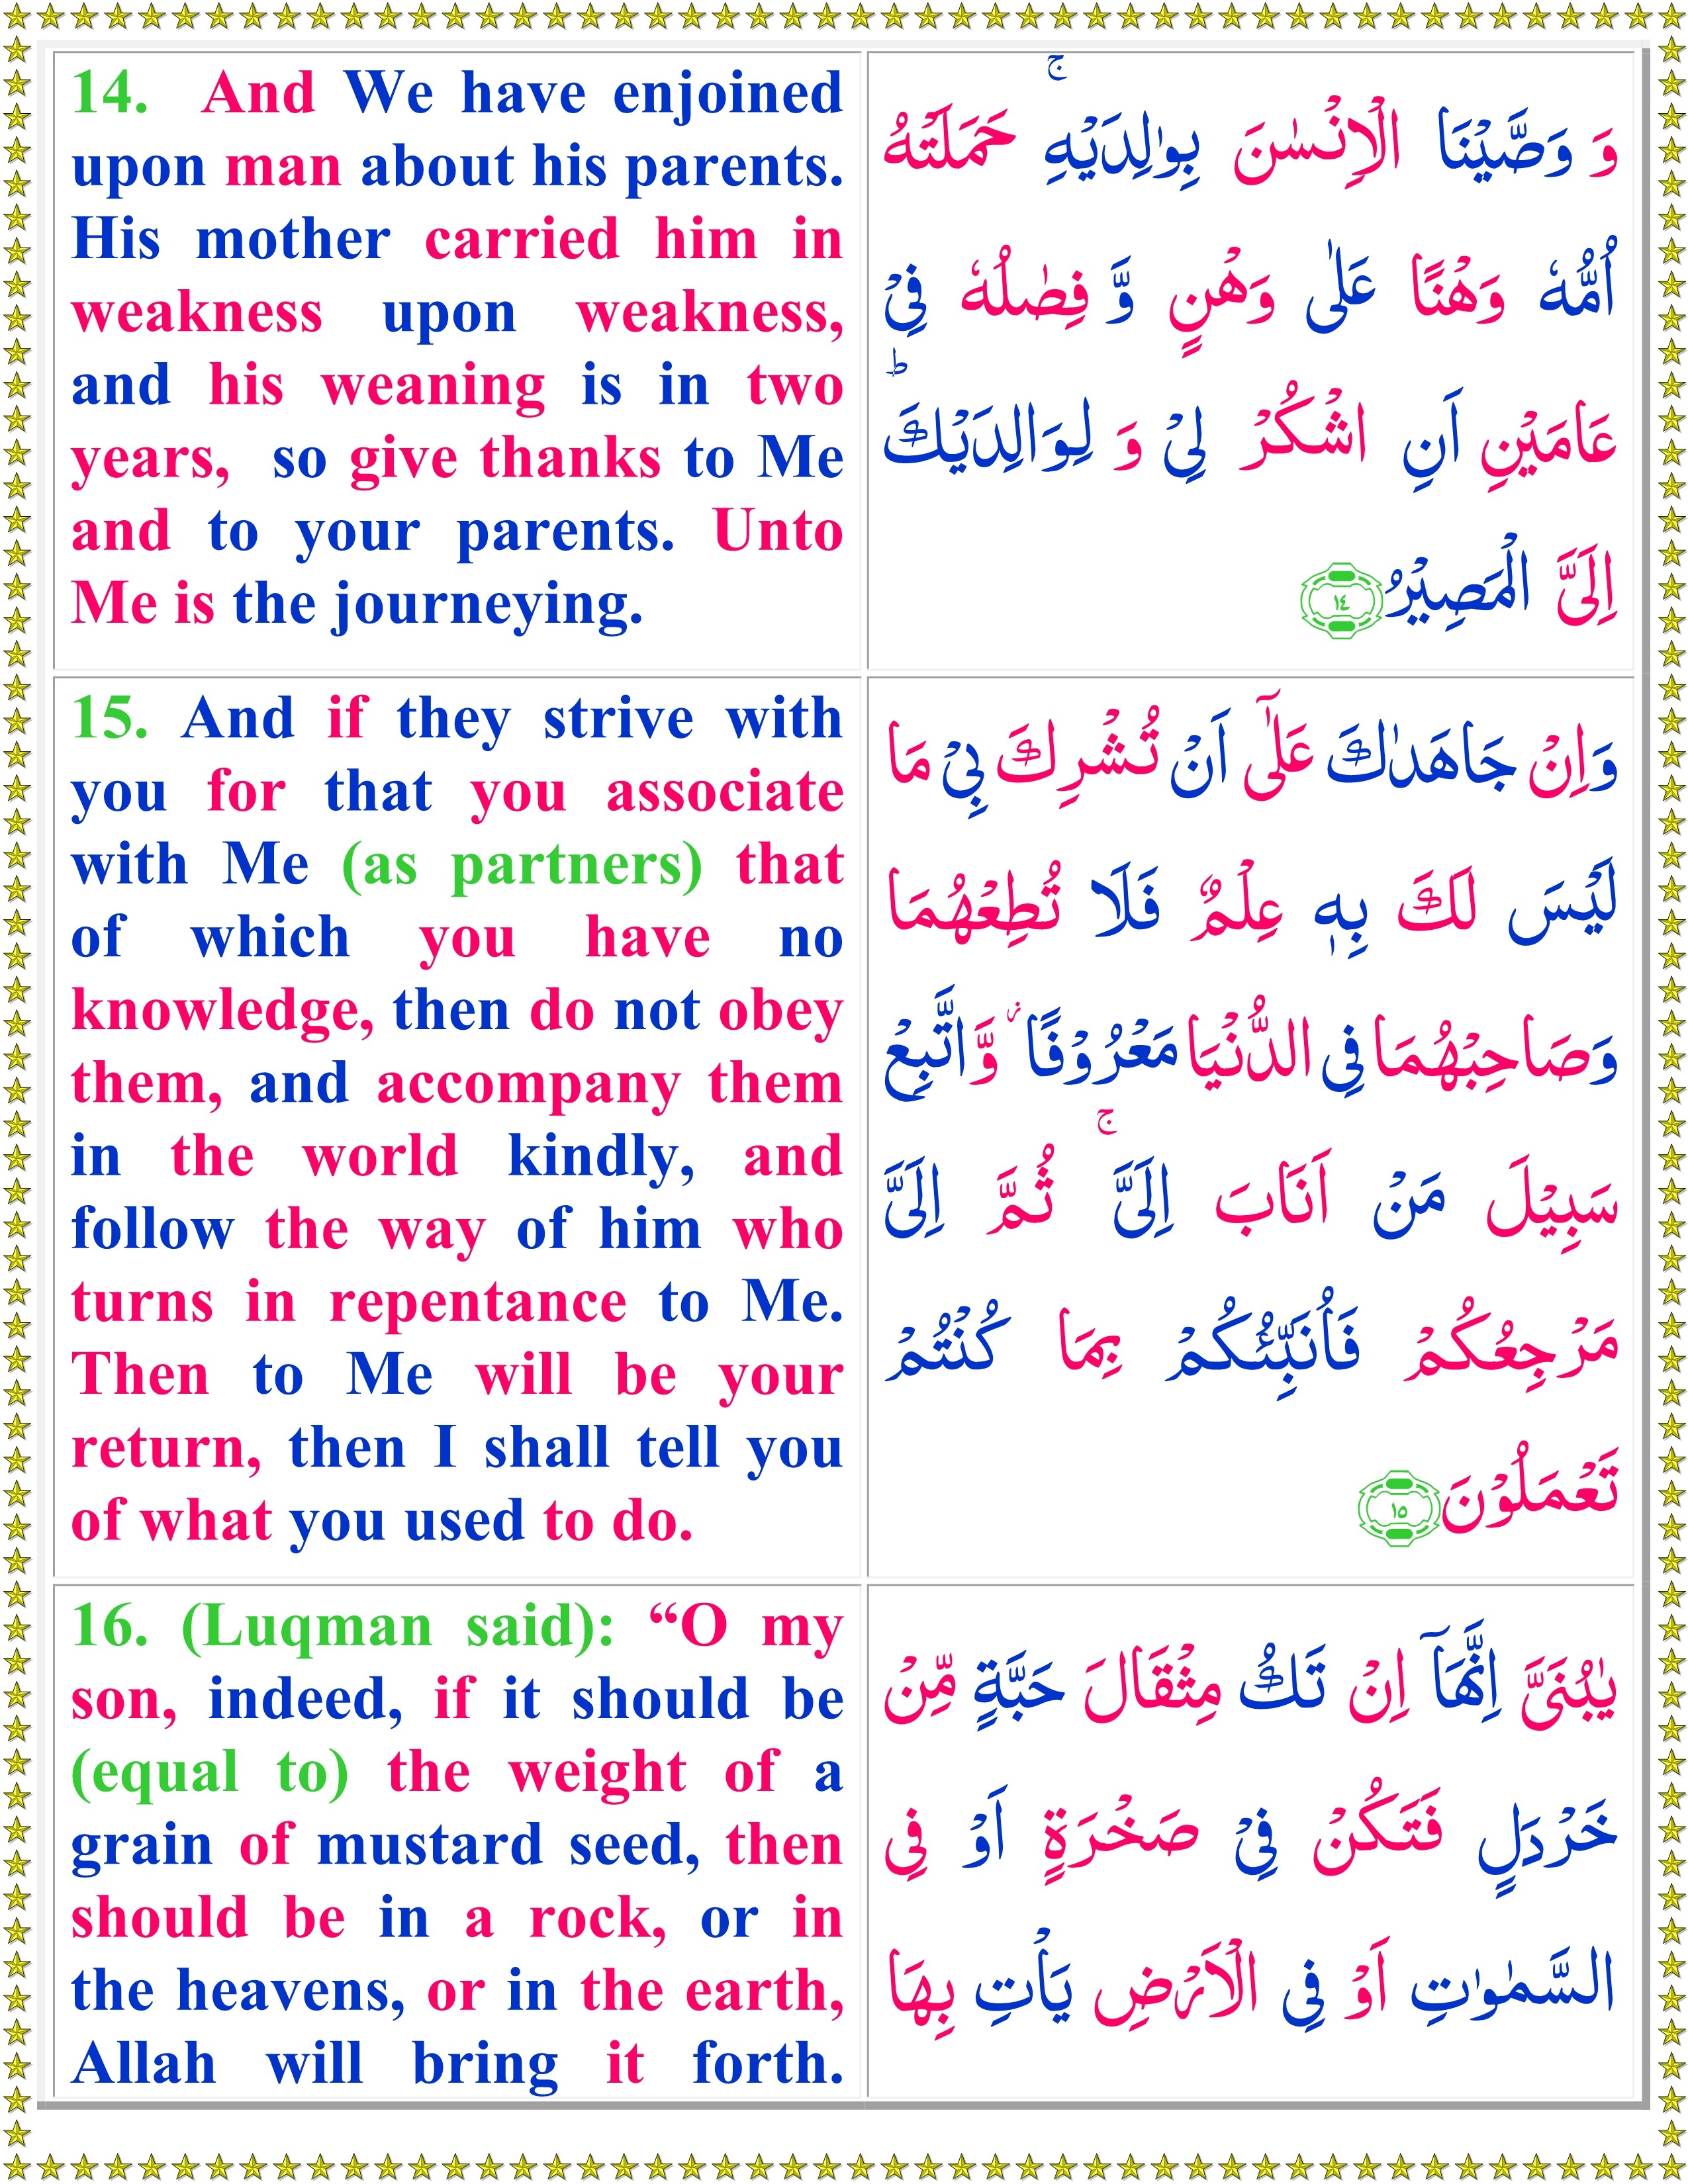 14. And We have enjoined
upon man about his parents.
His mother carried him in
weakness upon weakness,
and his weaning is in two
years, so give thanks to Me
and to your parents. Unto
Me is the journeying.
وَ وَصَّيْنَا الْاِنْسٰنَ بِوٰلِدَيْهِ ۚ حَمَلَتْهُ
اُمُّهٗ وَهْنًا عَلٰى وَهْنٍ وَّ فِصٰلُهٗ فِيْ
عَامَيْنِ اَنِ اشْكُرْ لِيْ وَ لِوَالِدَيْكَ ؕ
اِلَيَّ الْمَصِيْرُ ١٤
15. And if they strive with
you for that you associate
with Me (as partners) that
of which you have no
knowledge, then do not obey
them, and accompany them
in the world kindly, and
follow the way of him who
turns in repentance to Me.
Then to Me will be your
return, then I shall tell you
of what you used to do.
وَاِنْ جَاهَدٰكَ عَلٰٓى اَنْ تُشْرِكَ بِيْ مَا
لَيْسَ لَكَ بِهٖ عِلْمٌ فَلَا تُطِعْهُمَا
وَصَاحِبْهُمَا فِي الدُّنْيَا مَعْرُوْفًا ؗ وَّ اتَّبِعْ
سَبِيْلَ مَنْ اَنَابَ اِلَيَّ ۚ ثُمَّ اِلَيَّ
مَرْجِعُكُمْ فَاُنَبِّئُكُمْ بِمَا كُنْتُمْ
تَعْمَلُوْنَ ١٥
16. (Luqman said): “O my
son, indeed, if it should be
(equal to) the weight of a
grain of mustard seed, then
should be in a rock, or in
the heavens, or in the earth,
Allah will bring it forth.
يٰبُنَيَّ اِنَّهَآ اِنْ تَكُ مِثْقَالَ حَبَّةٍ مِّنْ
خَرْدَلٍ فَتَكُنْ فِيْ صَخْرَةٍ اَوْ فِي
السَّمٰوٰتِ اَوْ فِي الْاَرْضِ يَاْتِ بِهَا